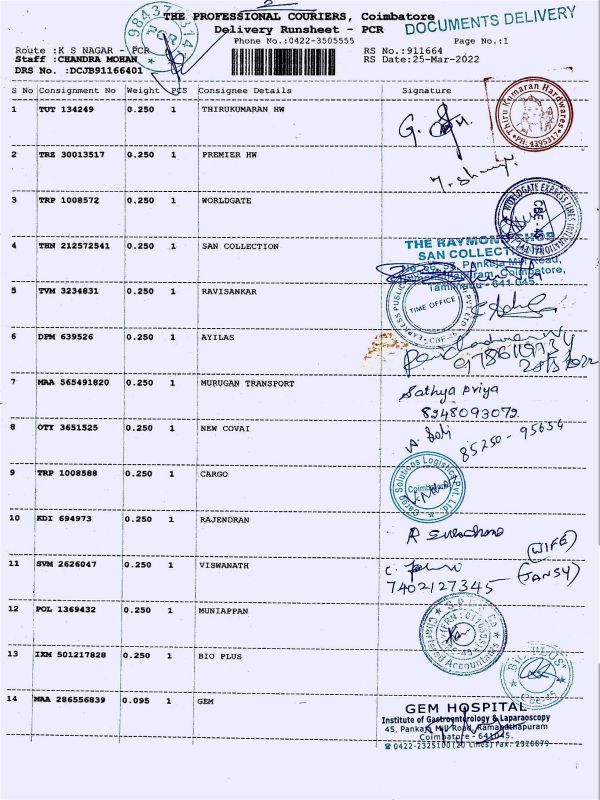 THE PROFESSIONAL COURIERS, Coimbatore
Delivery Runsheet - PCR
DOCUMENTS DELIVERY
Phone No.:0422-3505555
Page No.:1
Route :K S NAGAR - PCR
RS No.:911664
Staff :CHANDRA MOHAN
RS Date:25-Mar-2022
DRS No. :DCJB91166401
S No Consignment No Weight PCS Consignee Details Signature
1 TUT 134249 0.250 1 THIRUKUMARAN HW
Thiru Kumaran Hardwares
PH: 4395317
2 TRZ 30013517 0.250 1 PREMIER HW
3 TRP 1008572 0.250 1 WORLDGATE
WORLDGATE EXPRESS LINES INTERNATIONAL
CBE-45
4 THN 212572541 0.250 1 SAN COLLECTION
THE RAYMOND SHOP
SAN COLLECTION
Pankaja Mill Road,
Coimbatore,
Tamilnadu - 641 045.
5 TVM 3234831 0.250 1 RAVISANKAR
TIME OFFICE
6 DPM 639526 0.250 1 AYILAS
7 MAA 565491820 0.250 1 MURUGAN TRANSPORT
Sathya priya
8248093072
8 OTY 3651525 0.250 1 NEW COVAI
85250-95654
9 TRP 1008588 0.250 1 CARGO
Cargo Solutions Logistics Pvt. Ltd.
Coimbatore
10 KDI 694973 0.250 1 RAJENDRAN
(WIFE)
11 SVM 2626047 0.250 1 VISWANATH
7402127345 (JANSY)
12 POL 1369432 0.250 1 MUNIAPPAN
Chartered Accountants
13 IXM 501217828 0.250 1 BIO PLUS
BIO PLUS
CBE-45
14 MAA 286556839 0.095 1 GEM
GEM HOSPITAL
Institute of Gastroenterology & Laparaoscopy
45, Pankaja Mill Road, Ramanathapuram
Coimbatore - 641045.
0422-2325100 (20 Lines) Fax: 2320879